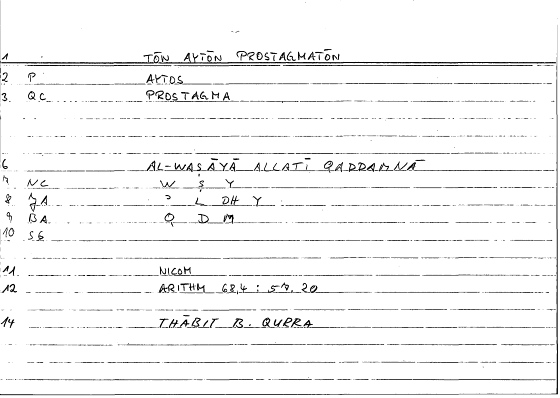 1 TŌN AYTŌN PROSTAGMATŌN
2 P AYTOS
3 QC PROSTAGMA
6 AL-WAṢĀYĀ ALLATĪ QADDAMNĀ
7 NC W Ṣ Y
8 JA ʾ L DH Y
9 BA Q D M
10 SG
11 NICOM
12 ARITHM 68,4 : 57.20
14 THĀBIT B. QURRA